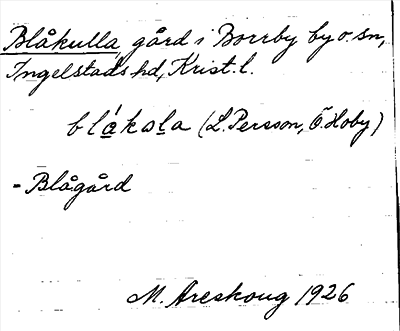 Blåkulla, gård i Borrby by o. sn,
Ingelstads hd, Krist. l.
blákola (L. Persson, Ö. Hoby)
= Blågård
M. Areskoug 1926